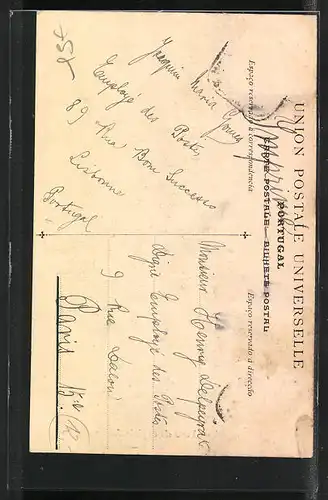 UNION POSTALE UNIVERSELLE
PORTUGAL
CARTE POSTALE - BILHETE POSTAL
Espaço reservado á correspondencia
Espaço reservado á direcção
Joaquim Maria Gomes
Employé des Postes
89 Rua Bom Successo
Lisbonne
Portugal
Monsieur Henry
Digne Employé des Postes
9 Rue
Paris 15e